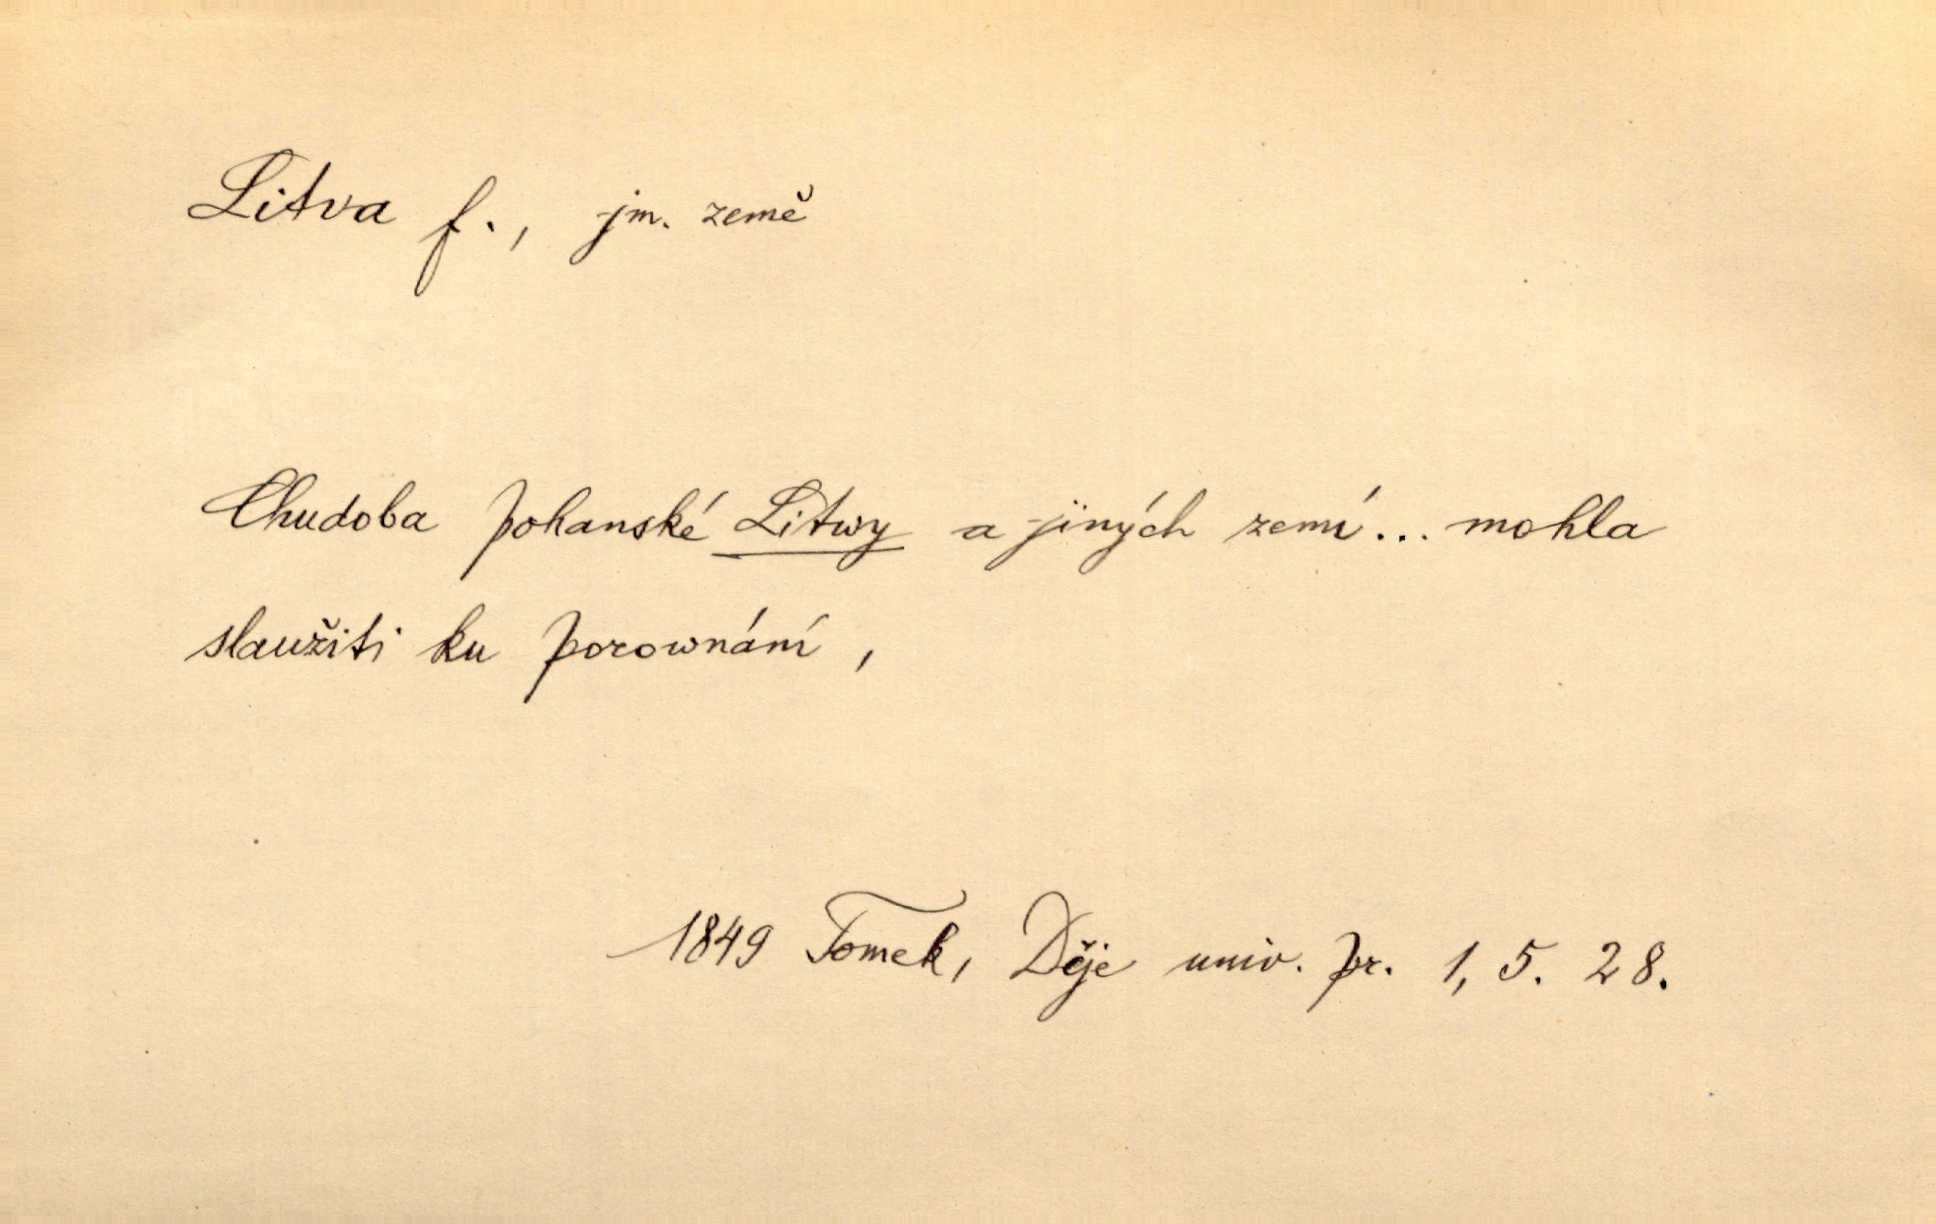 Litva f., jm. země
Chudoba pohanské Litwy a jiných zemí... mohla
slaužiti ku porownání,
1849 Tomek, Děje univ. pr. 1, 5. 28.